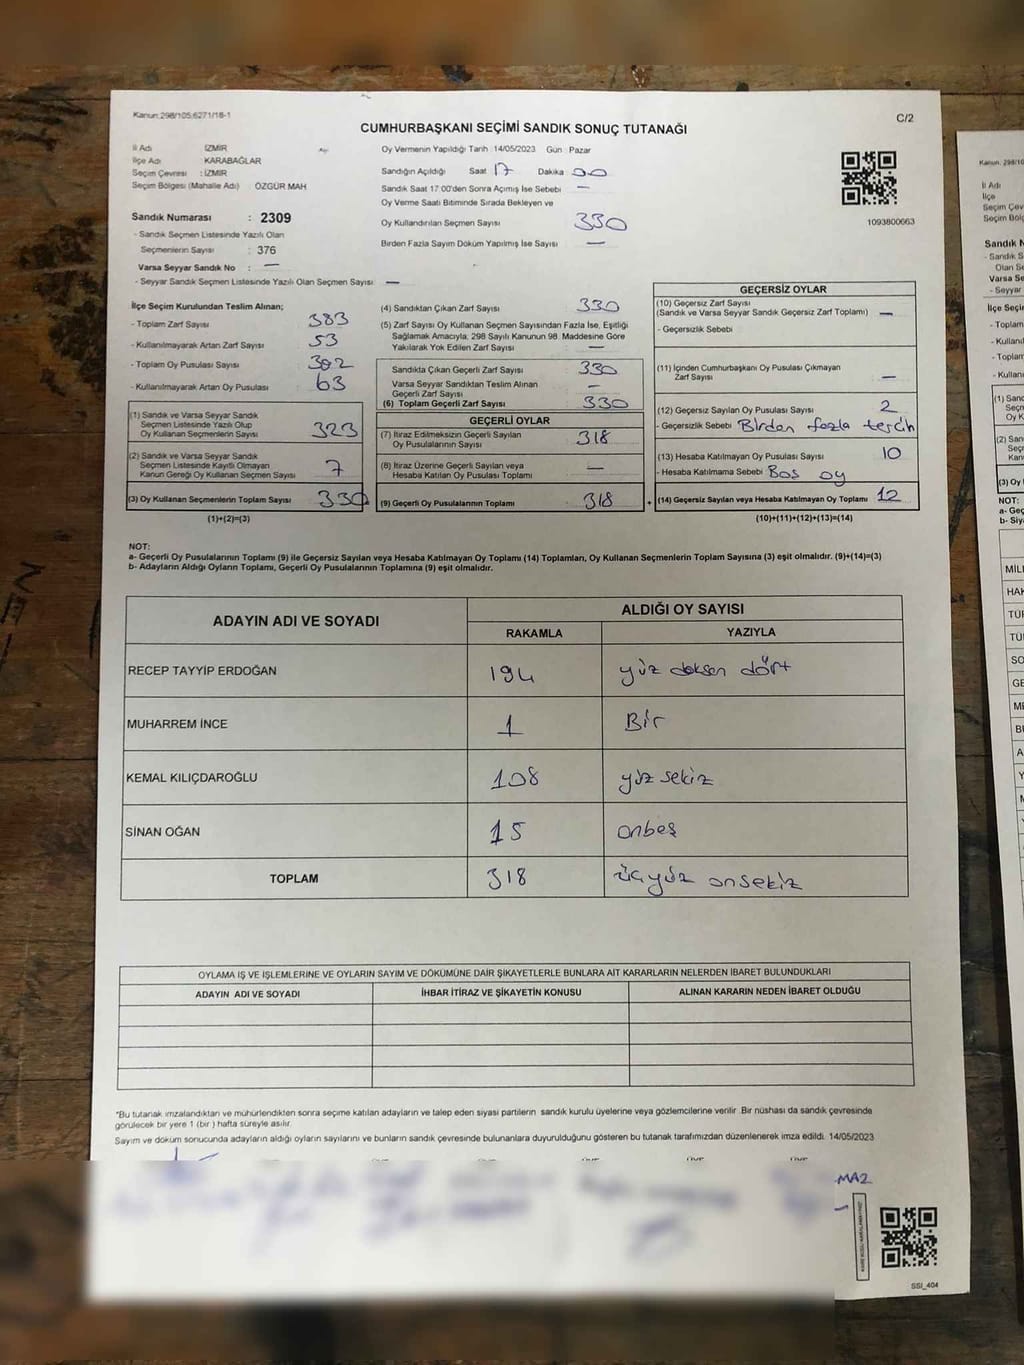 Kanun:298/105;6271/18-1
C/2
CUMHURBAŞKANI SEÇİMİ SANDIK SONUÇ TUTANAĞI
İl Adı : İZMİR
İlçe Adı : KARABAĞLAR
Seçim Çevresi : İZMİR
Seçim Bölgesi (Mahalle Adı) : ÖZGÜR MAH
Sandık Numarası : 2309
- Sandık Seçmen Listesinde Yazılı Olan
Seçmenlerin Sayısı : 376
Varsa Seyyar Sandık No : —
- Seyyar Sandık Seçmen Listesinde Yazılı Olan Seçmen Sayısı : —
Oy Vermenin Yapıldığı Tarih : 14/05/2023 Gün : Pazar
Sandığın Açıldığı Saat 17 Dakika 00
Sandık Saat 17:00'den Sonra Açımış İse Sebebi —
Oy Verme Saati Bitiminde Sırada Bekleyen ve
Oy Kullandırılan Seçmen Sayısı 330
Birden Fazla Sayım Döküm Yapılmış İse Sayısı —
1093800663
İlçe Seçim Kurulundan Teslim Alınan;
- Toplam Zarf Sayısı 383
- Kullanılmayarak Artan Zarf Sayısı 53
- Toplam Oy Pusulası Sayısı
- Kullanılmayarak Artan Oy Pusulası 63
(1) Sandık ve Varsa Seyyar Sandık
Seçmen Listesinde Yazılı Olup
Oy Kullanan Seçmenlerin Sayısı 323
(2) Sandık ve Varsa Seyyar Sandık
Seçmen Listesinde Kayıtlı Olmayan
Kanun Gereği Oy Kullanan Seçmen Sayısı 7
(3) Oy Kullanan Seçmenlerin Toplam Sayısı 330
(1)+(2)=(3)
(4) Sandıktan Çıkan Zarf Sayısı 330
(5) Zarf Sayısı Oy Kullanan Seçmen Sayısından Fazla İse, Eşitliği
Sağlamak Amacıyla, 298 Sayılı Kanunun 98. Maddesine Göre
Yakılarak Yok Edilen Zarf Sayısı : —
Sandıkta Çıkan Geçerli Zarf Sayısı : 330
Varsa Seyyar Sandıktan Teslim Alınan
Geçerli Zarf Sayısı —
(6) Toplam Geçerli Zarf Sayısı : 330
GEÇERLİ OYLAR
(7) İtiraz Edilmeksizin Geçerli Sayılan
Oy Pusulasının Sayısı : 318
(8) İtiraz Üzerine Geçerli Sayılan veya
Hesaba Katılan Oy Pusulası Toplamı : —
(9) Geçerli Oy Pusulalarının Toplamı : 318
+
GEÇERSİZ OYLAR
(10) Geçersiz Zarf Sayısı
(Sandık ve Varsa Seyyar Sandık Geçersiz Zarf Toplamı) : —
- Geçersizlik Sebebi
(11) İçinden Cumhurbaşkanı Oy Pusulası Çıkmayan
Zarf Sayısı : —
(12) Geçersiz Sayılan Oy Pusulası Sayısı : 2
- Geçersizlik Sebebi Birden fazla tercih
(13) Hesaba Katılmayan Oy Pusulası Sayısı : 10
- Hesaba Katılmama Sebebi Boş oy
(14) Geçersiz Sayılan veya Hesaba Katılmayan Oy Toplamı : 12
(10)+(11)+(12)+(13)=(14)
NOT:
a- Geçerli Oy Pusulalarının Toplamı (9) ile Geçersiz Sayılan veya Hesaba Katılmayan Oy Toplamı (14) Toplamları, Oy Kullanan Seçmenlerin Toplam Sayısına (3) eşit olmalıdır. (9)+(14)=(3)
b- Adayların Aldığı Oyların Toplamı, Geçerli Oy Pusulalarının Toplamına (9) eşit olmalıdır.
ADAYIN ADI VE SOYADI
ALDIĞI OY SAYISI
RAKAMLA YAZIYLA
RECEP TAYYİP ERDOĞAN 194 yüz doksan dört
MUHARREM İNCE 1 Bir
KEMAL KILIÇDAROĞLU 108 yüz sekiz
SİNAN OĞAN 15 onbeş
TOPLAM 318 üçyüz onsekiz
OYLAMA İŞ VE İŞLEMLERİNE VE OYLARIN SAYIM VE DÖKÜMÜNE DAİR ŞİKAYETLERLE BUNLARA AİT KARARLARIN NELERDEN İBARET BULUNDUKLARI
ADAYIN ADI VE SOYADI İHBAR İTİRAZ VE ŞİKAYETİN KONUSU ALINAN KARARIN NEDEN İBARET OLDUĞU
*Bu tutanak imzalandıktan ve mühürlendikten sonra seçime katılan adayların ve talep eden siyasi partilerin sandık kurulu üyelerine veya gözlemcilerine verilir .Bir nüshası da sandık çevresinde
görülecek bir yere 1 (bir ) hafta süreyle asılır.
Sayım ve döküm sonucunda adayların aldığı oyların sayılarını ve bunların sandık çevresinde bulunanlara duyurulduğunu gösteren bu tutanak tarafımızdan düzenlenerek imza edildi. 14/05/2023
SSI_404
Kanun: 298/10
İl Adı
İlçe
Seçim Çev
Seçim Bölg
Sandık N
- Sandık S
Olan Se
Varsa Se
- Seyyar
İlçe Seçi
- Toplam
- Kullanıl
- Toplam
- Kullan
NOT:
a- Geç
b- Siy
MİLL
HAK
TÜR